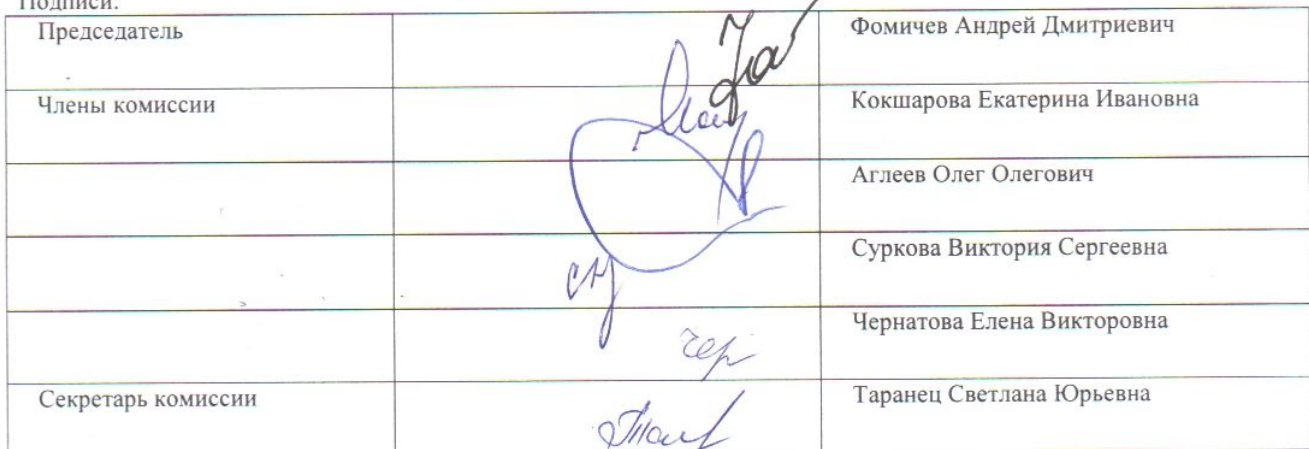 Подписи:
Председатель Фомичев Андрей Дмитриевич
Члены комиссии Кокшарова Екатерина Ивановна
Аглеев Олег Олегович
Суркова Виктория Сергеевна
Чернатова Елена Викторовна
Секретарь комиссии Таранец Светлана Юрьевна